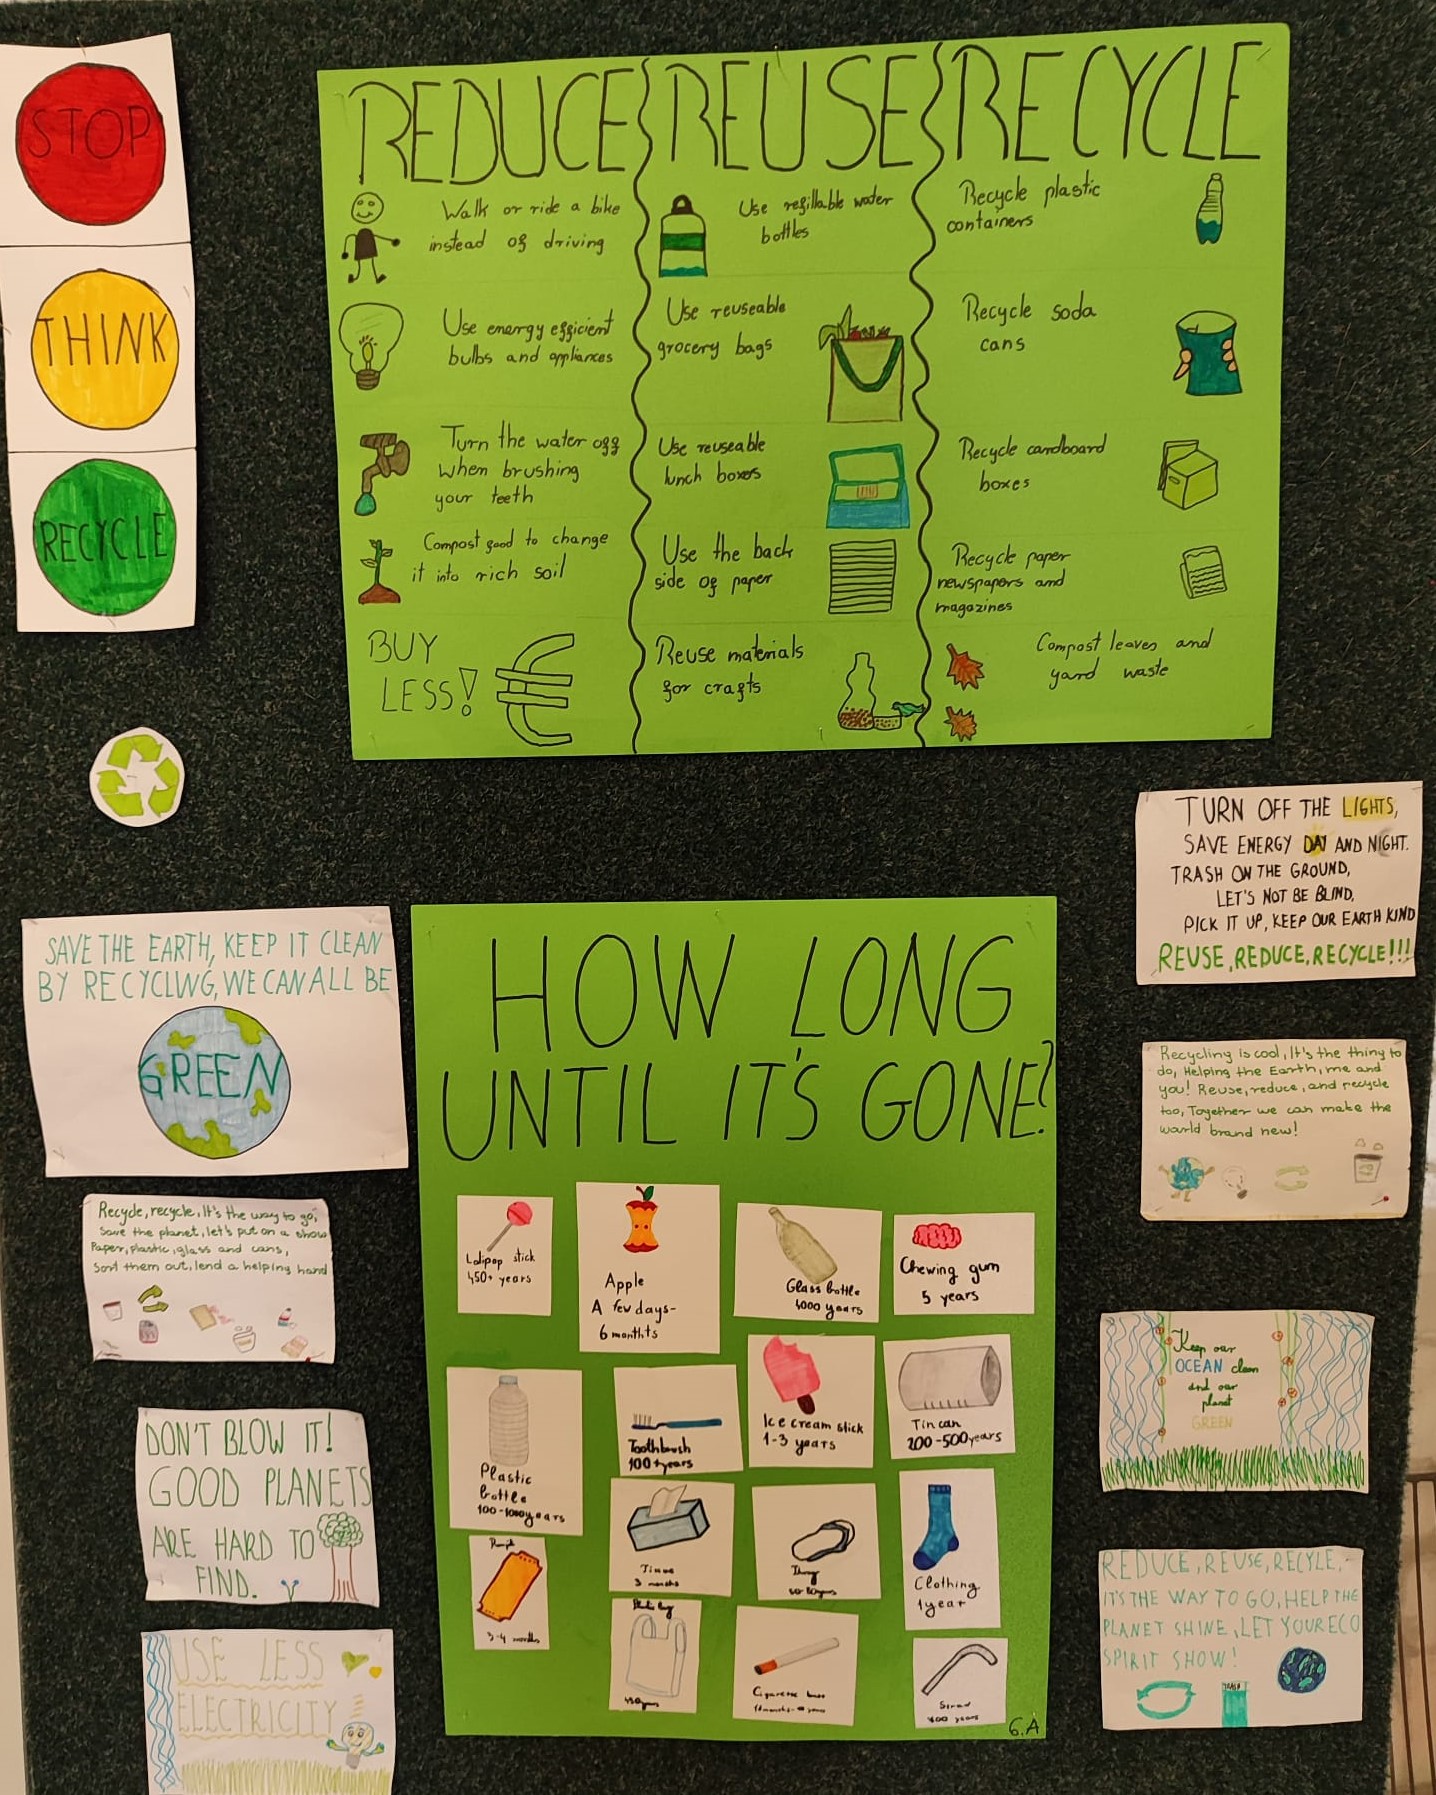 STOP
THINK
RECYCLE
REDUCE
Walk or ride a bike
instead of driving
Use energy efficient
bulbs and appliances
Turn the water off
when brushing
your teeth
Compost food to change
it into rich soil
BUY
LESS!
€
REUSE
Use refillable water
bottles
Use reuseable
grocery bags
Use reuseable
lunch boxes
Use the back
side of paper
Reuse materials
for crafts
RECYCLE
Recycle plastic
containers
Recycle soda
cans
Recycle cardboard
boxes
Recycle paper
newspapers and
magazines
Compost leaves and
yard waste
SAVE THE EARTH, KEEP IT CLEAN
BY RECYCLING, WE CAN ALL BE
GREEN
Recycle, recycle, It's the way to go,
Save the planet, let's put on a show
Paper, plastic, glass and cans,
Sort them out, lend a helping hand
DON'T BLOW IT!
GOOD PLANETS
ARE HARD TO
FIND.
USE LESS
ELECTRICITY
HOW LONG
UNTIL IT'S GONE?
Lolipop stick
450+ years
Apple
A few days-
6 months
Glass bottle
4000 years
Chewing gum
5 years
Plastic
bottle
100-1000years
Toothbrush
100+years
Ice cream stick
1-3 years
Tin can
200-500years
Tissue
3 months
Clothing
1year
3-4 months
Plastic bag
Cigarette
Straw
6.A
TURN OFF THE LIGHTS,
SAVE ENERGY DAY AND NIGHT.
TRASH ON THE GROUND,
LET'S NOT BE BLIND,
PICK IT UP, KEEP OUR EARTH KIND
REUSE, REDUCE, RECYCLE!!!
Recycling is cool, It's the thing to
do, Helping the Earth, me and
you! Reuse, reduce, and recycle
too, Together we can make the
world brand new!
Keep our
OCEAN clean
and our
planet
GREEN
REDUCE, REUSE, RECYLE,
IT'S THE WAY TO GO, HELP THE
PLANET SHINE, LET YOUR ECO
SPIRIT SHOW!
TRASH